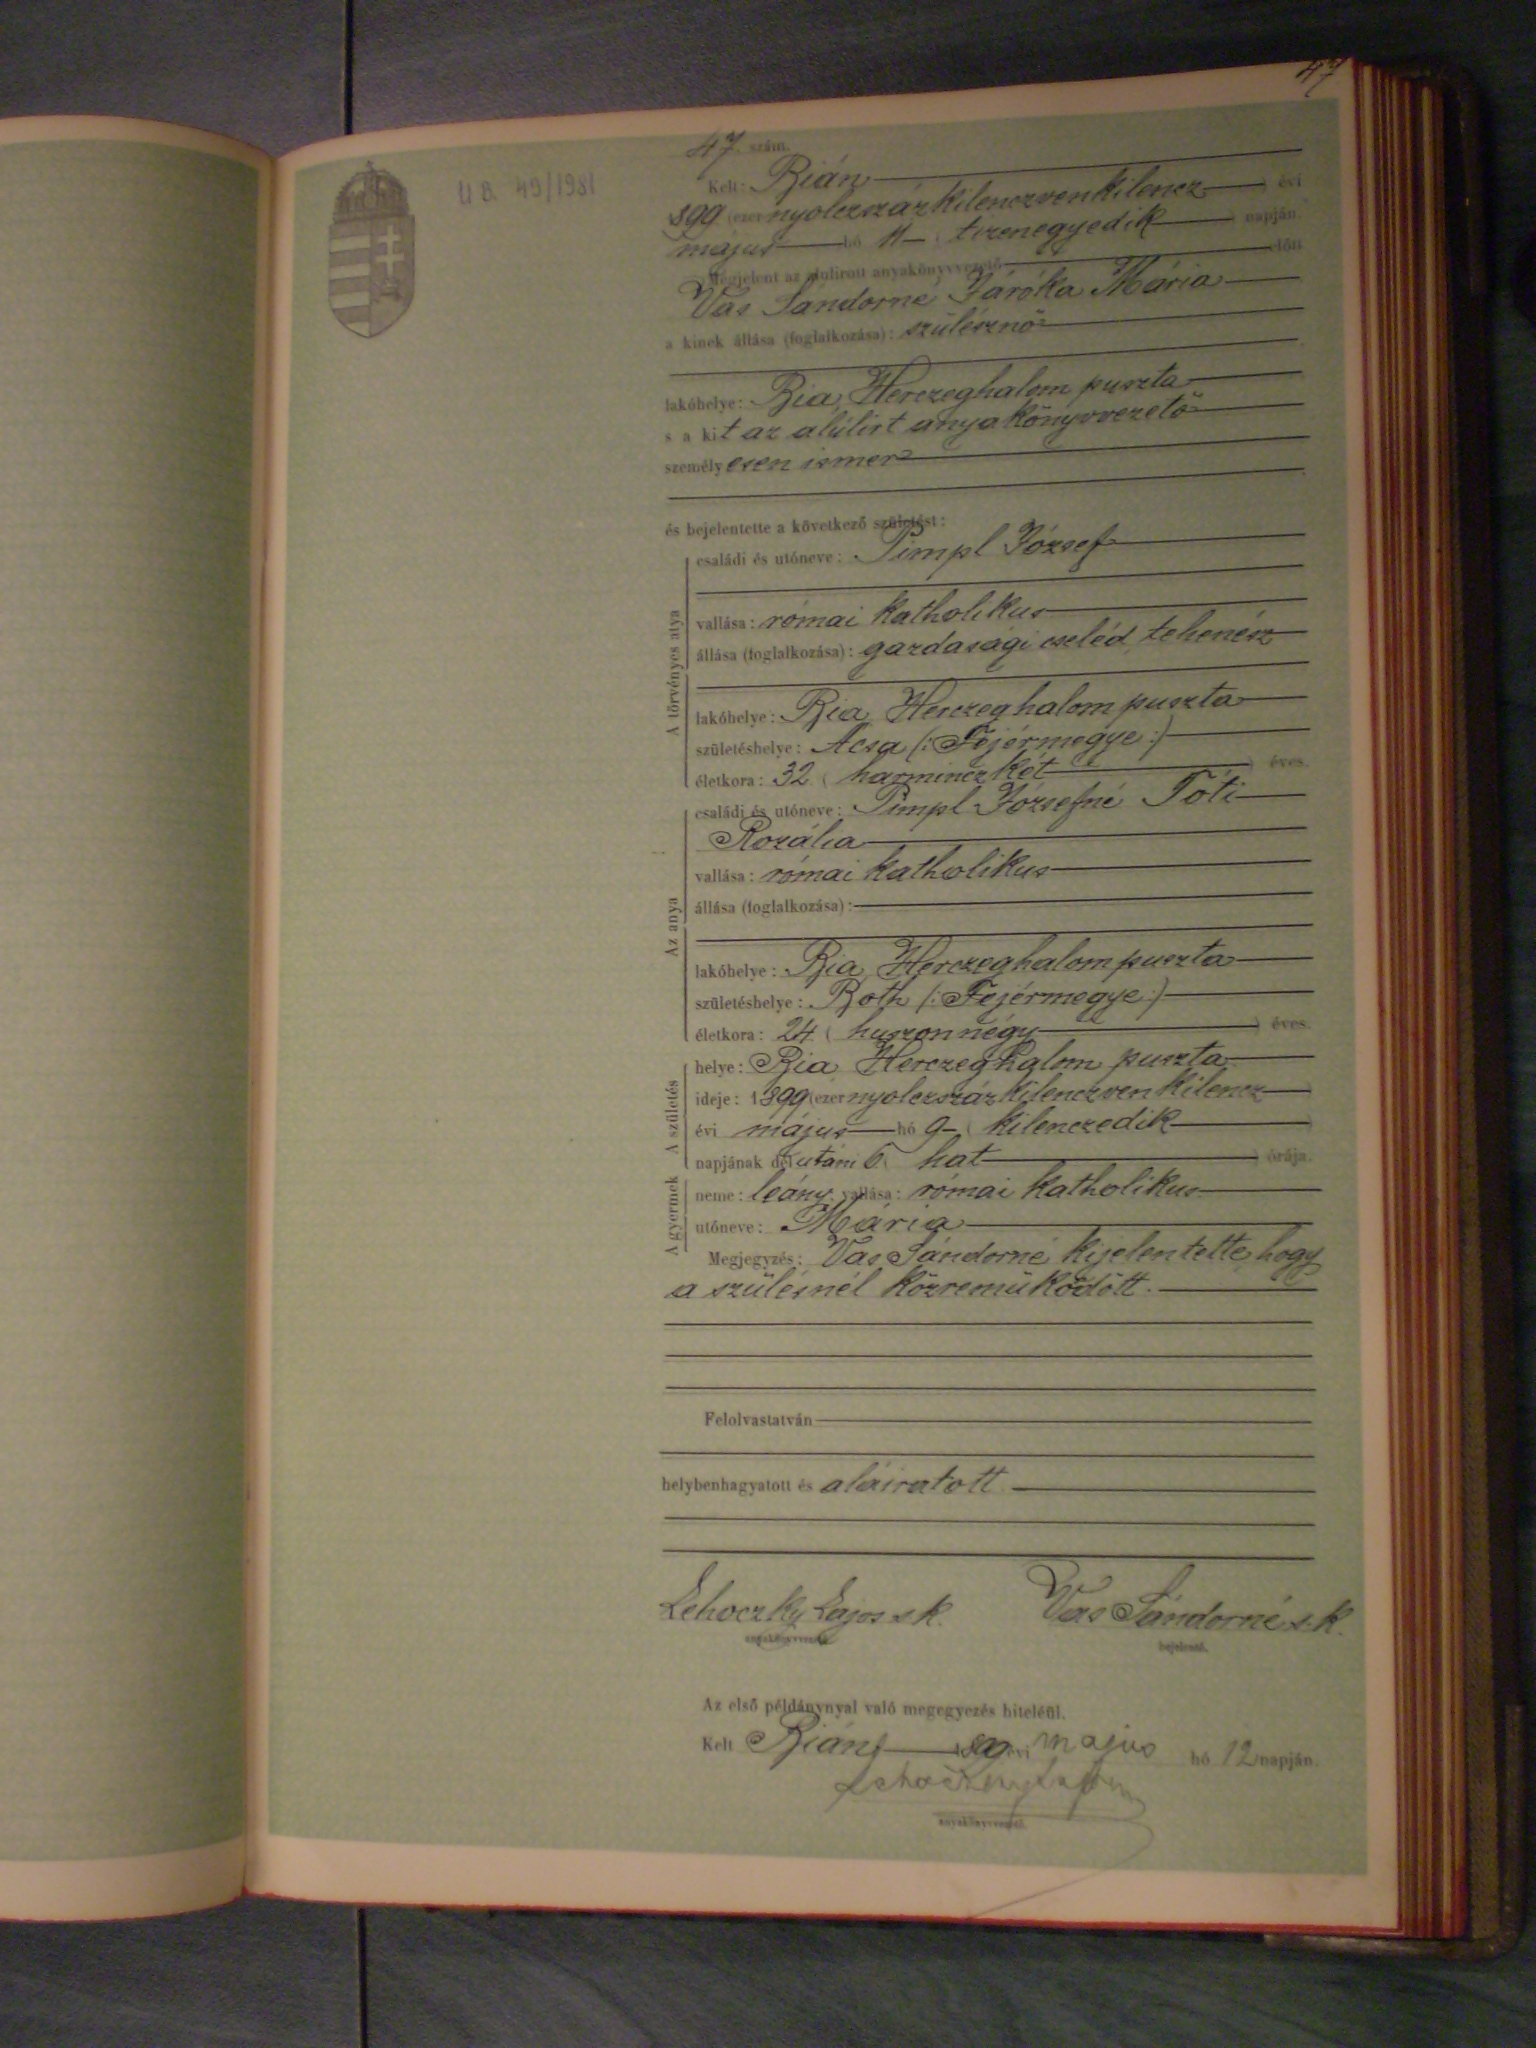 47
U. B. 49/1981
47. szám.
Kelt: Bián évi
899 (ezer nyolczszázkilenczvenkilencz )
május hó 11 ( tizenegyedik ) napján.
Megjelent az alulirott anyakönyvvezető előtt
Vas Sándorné Járóka Mária
a kinek állása (foglalkozása): szülésznő
lakóhelye: Bia, Herczeghalom puszta
s a kit az alúlirt anyakönyvvezető
személyesen ismer
és bejelentette a következő születést:
A törvényes atya
családi és utóneve: Pimpl József
vallása: római katholikus
állása (foglalkozása): gazdasági cseléd, tehenész
lakóhelye: Bia, Herczeghalom puszta
születéshelye: Acsa (: Fejérmegye :)
életkora: 32 ( harminczkét ) éves.
Az anya
családi és utóneve: Pimpl Józsefné Tóti
Rozália
vallása: római katholikus
állása (foglalkozása):
lakóhelye: Bia, Herczeghalom puszta
születéshelye: Both (: Fejérmegye :)
életkora: 24 ( huszonnégy ) éves.
A születés
helye: Bia, Herczeghalom puszta
ideje: 1899 (ezer nyolczszázkilenczvenkilencz )
évi május hó 9 ( kilenczedik )
napjának délutáni 6 ( hat ) órája.
A gyermek
neme: leány; vallása: római katholikus
utóneve: Mária
Megjegyzés: Vas Sándorné kijelentette, hogy
a szülésnél közreműködött.
Felolvastatván
helybenhagyatott és aláiratott
Lehoczky Lajos s.k. Vas Sándorné s.k.
anyakönyvvezető bejelentő.
Az első példánynyal való megegyezés hiteléül.
Kelt Bián, 1899 évi május hó 12 napján.
Lehoczky Lajos
anyakönyvvezető.